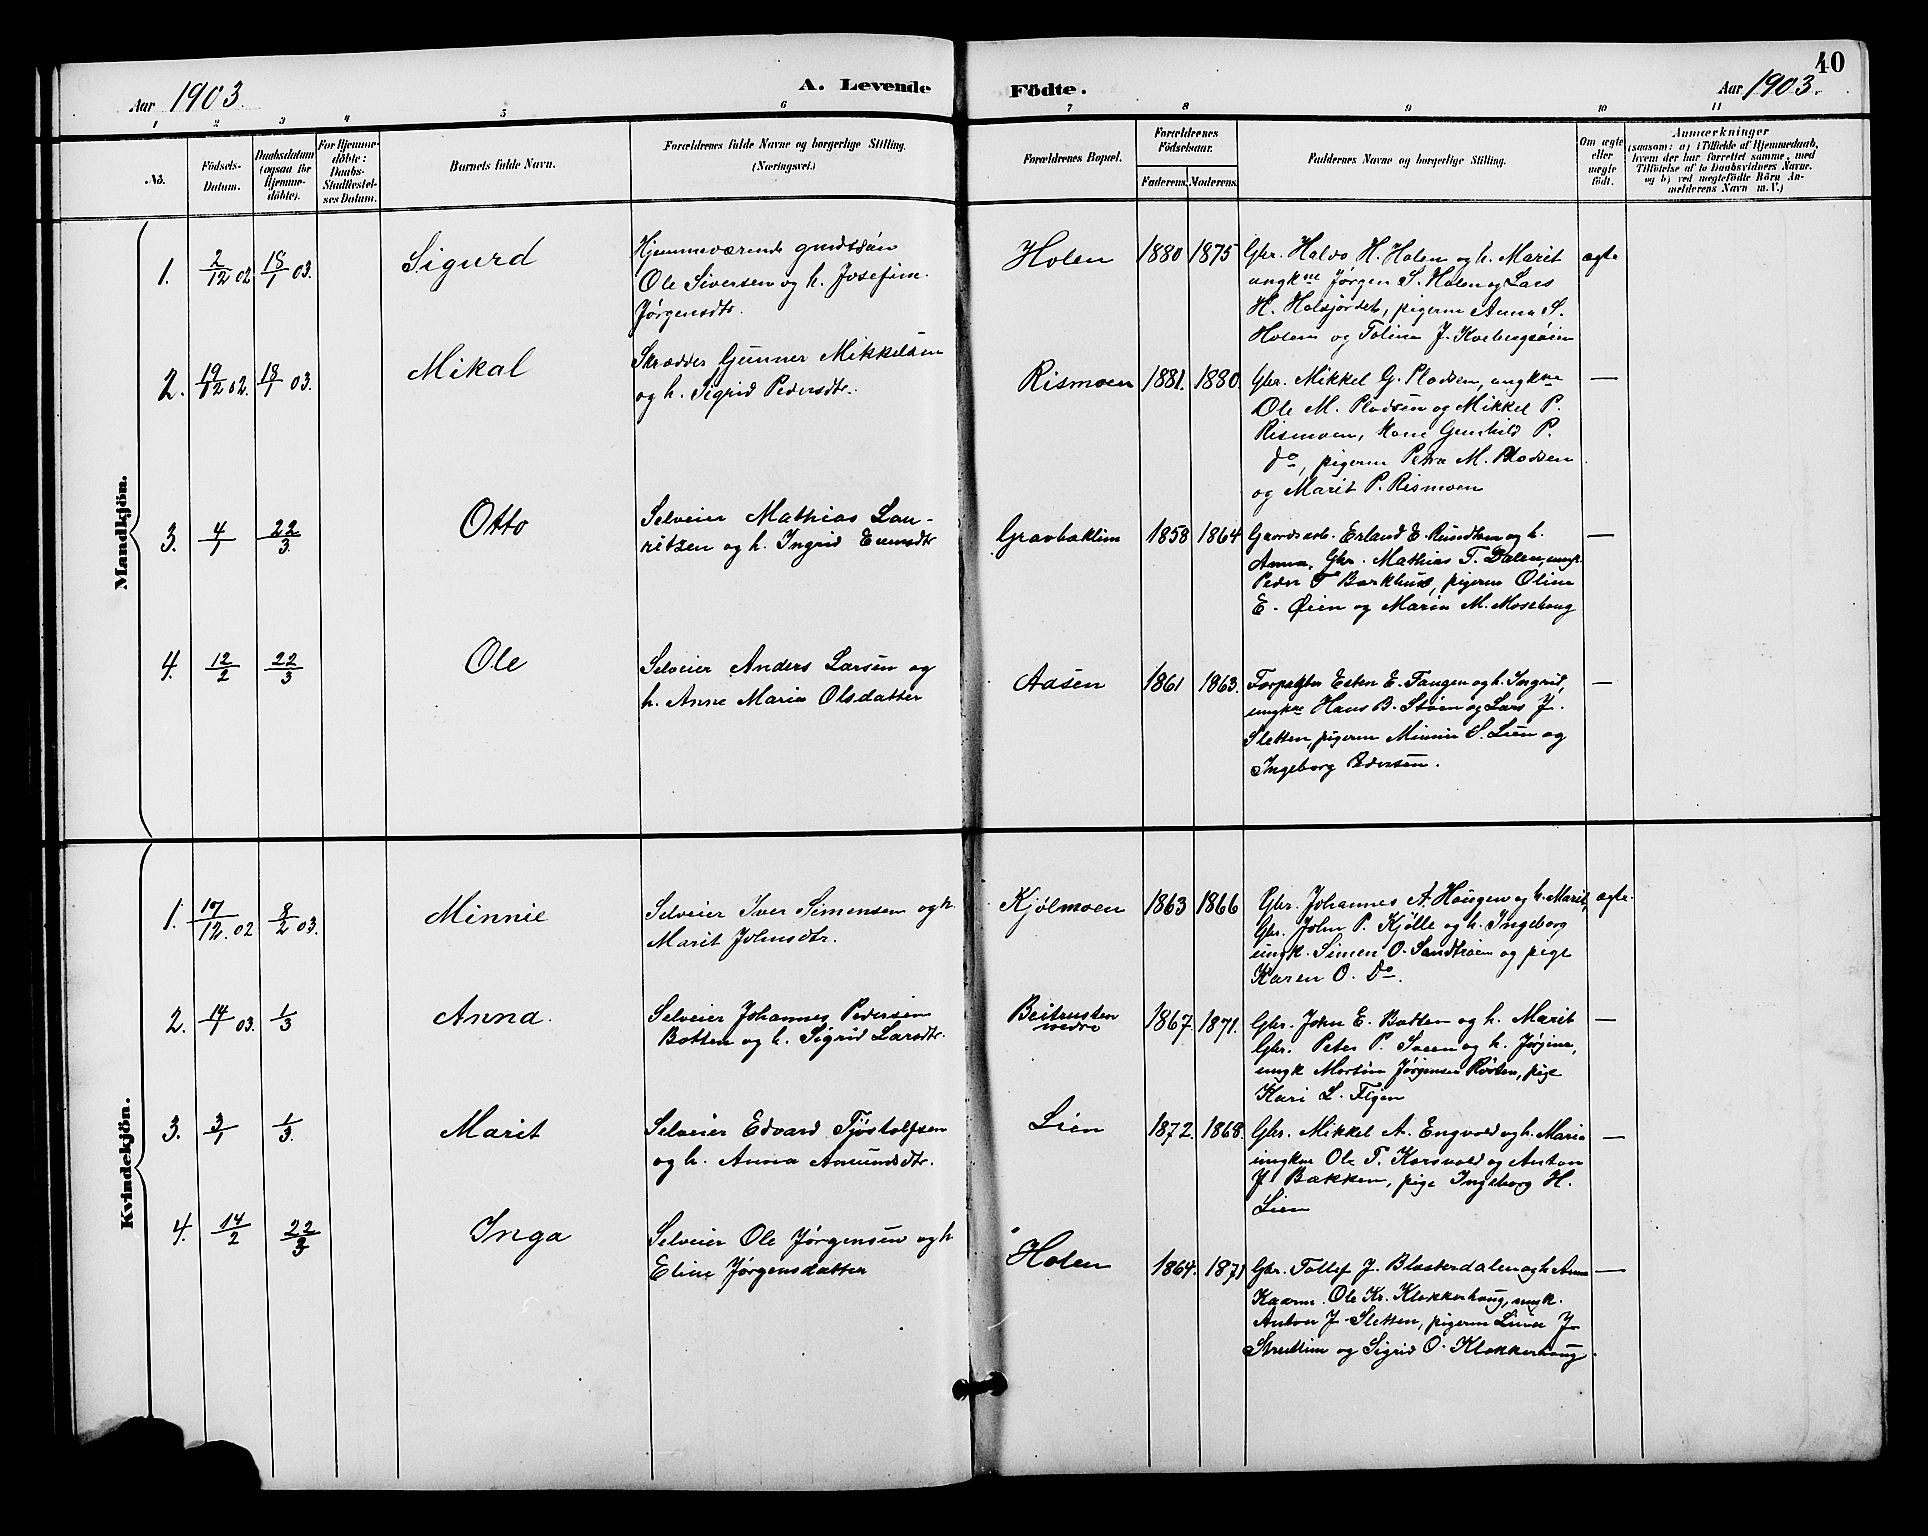 40
Aar 1903. A. Levende Födte. Aar 1903.
1 2 3 4 5 6 7 8 9 10 11
No.
Födsels-Datum.
Daabsdatum (ogsaa for Hjemme-döbte).
For Hjemme-döbte: Daabs-Stadfæstel-ses Datum.
Barnets fulde Navn.
Forældrenes fulde Navne og borgerlige Stilling.
(Næringsvei.)
Forældrenes Bopæl.
Forældrenes Födselsaar.
Faderens. Moderens.
Faddernes Navne og borgerlige Stilling.
Om ægte eller uægte födt.
Anmærkninger
(saasom: a) i Tilfælde af Hjemmedaab,
hvem der har forrettet samme, med
Tilföielse af to Daabsvidners Navne.
og b) ved uægtefödte Börn An-
melderens Navn m. V.)
Mandkjön.
1. 2/12 02 18/1 03. Sigurd
Hjemmeværende gmdsøn
Ole Siversen og h. Josefine
Jørgensdtr.
Holen 1880 1875
Gbr. Halvo H. Holen og h. Marit
ungkne Jørgen S. Holen og Lars
H. Holsjordet, pigerne Anna S.
Holen og Tolina J. Kvebergsøien
ægte
2. 19/12 02. 18/1 03. Mikal
Skrædder Gunner Mikkelsen
og h. Sigrid Pedersdtr.
Rismoen 1881. 1880.
Gbr. Mikkel G. Plodsen, ungkne
Ole M. Plodsen og Mikkel P.
Rismoen, kone Gunhild P.
do, pigerne Petra M. Plodsen
og Marit P. Rismoen
—
3. 4/1 22/3 Otto
Selveier Mathias Lau-
ritzen og h. Ingrid Evensdtr
Gravbaklien 1858 1864
Gaardsarb. Erland E. Rundhen og h.
Anna, Gbr. Mathias T. Dalen, ungk.
Peder T Barkhus, pigerne Oline
E. Øien og Maria M. Mosehaug
—
4. 12/2 22/3 Ole
Selveier Anders Larsen og
h. Anne Maria Olsdatter
Aasen 1861 1863.
Forpagter Esten E. Tangen og h. Ingrid,
ungkne Hans B. Støen og Lars J.
Sletten, pigerne Minnie S. Lien og
Ingeborg Pedersen.
—
Kvindekjön.
1. 17/12. 02 8/2 03. Minnie
Selveier Iver Simensen og h.
Marit Johnsdtr.
Kjølmoen 1863 1866
Gbr. Johannes A. Haugen og h. Marit,
Gbr. John P. Kjølle og h. Ingeborg
ungk. Simen O. Sandtrøen og pige
Karen O. Do.
ægte
2. 14/1 03. 1/3 Anna.
Selveier Johannes Pedersen
Botten og h. Sigrid Larsdtr.
Beitrusten
nedre
1867. 1871.
Gbr. John E. Bodten og h. Marit
Gbr. Peter P. Sveen og h. Jørgine,
ungk Martin Jørgensen Røsten, pige
Kari L. Flgen
—
3. 3/1 1/3. Marit
Selveier Edvard Tjøstolfsen
og h. Anna Amundsdtr.
Lien 1872. 1868.
Gbr. Mikkel A. Engvold og h. Maria
ungkne Ole T. Korsvold og Anton
J. Bakken, pige Ingeborg H.
Lien
—
4. 14/2 22/3 Inga
Selveier Ole Jørgensen og h
Eline Jørgensdatter
Holen 1864. 1871
Gbr. Tollef J. Blæsterdalen og h Anne
Kaarm. Ole Kr. Klokkerhaug, ungk.
Anton J. Sletten, pigerne Lina J
Streitlien og Sigrid O. Klokkerhaug.
—